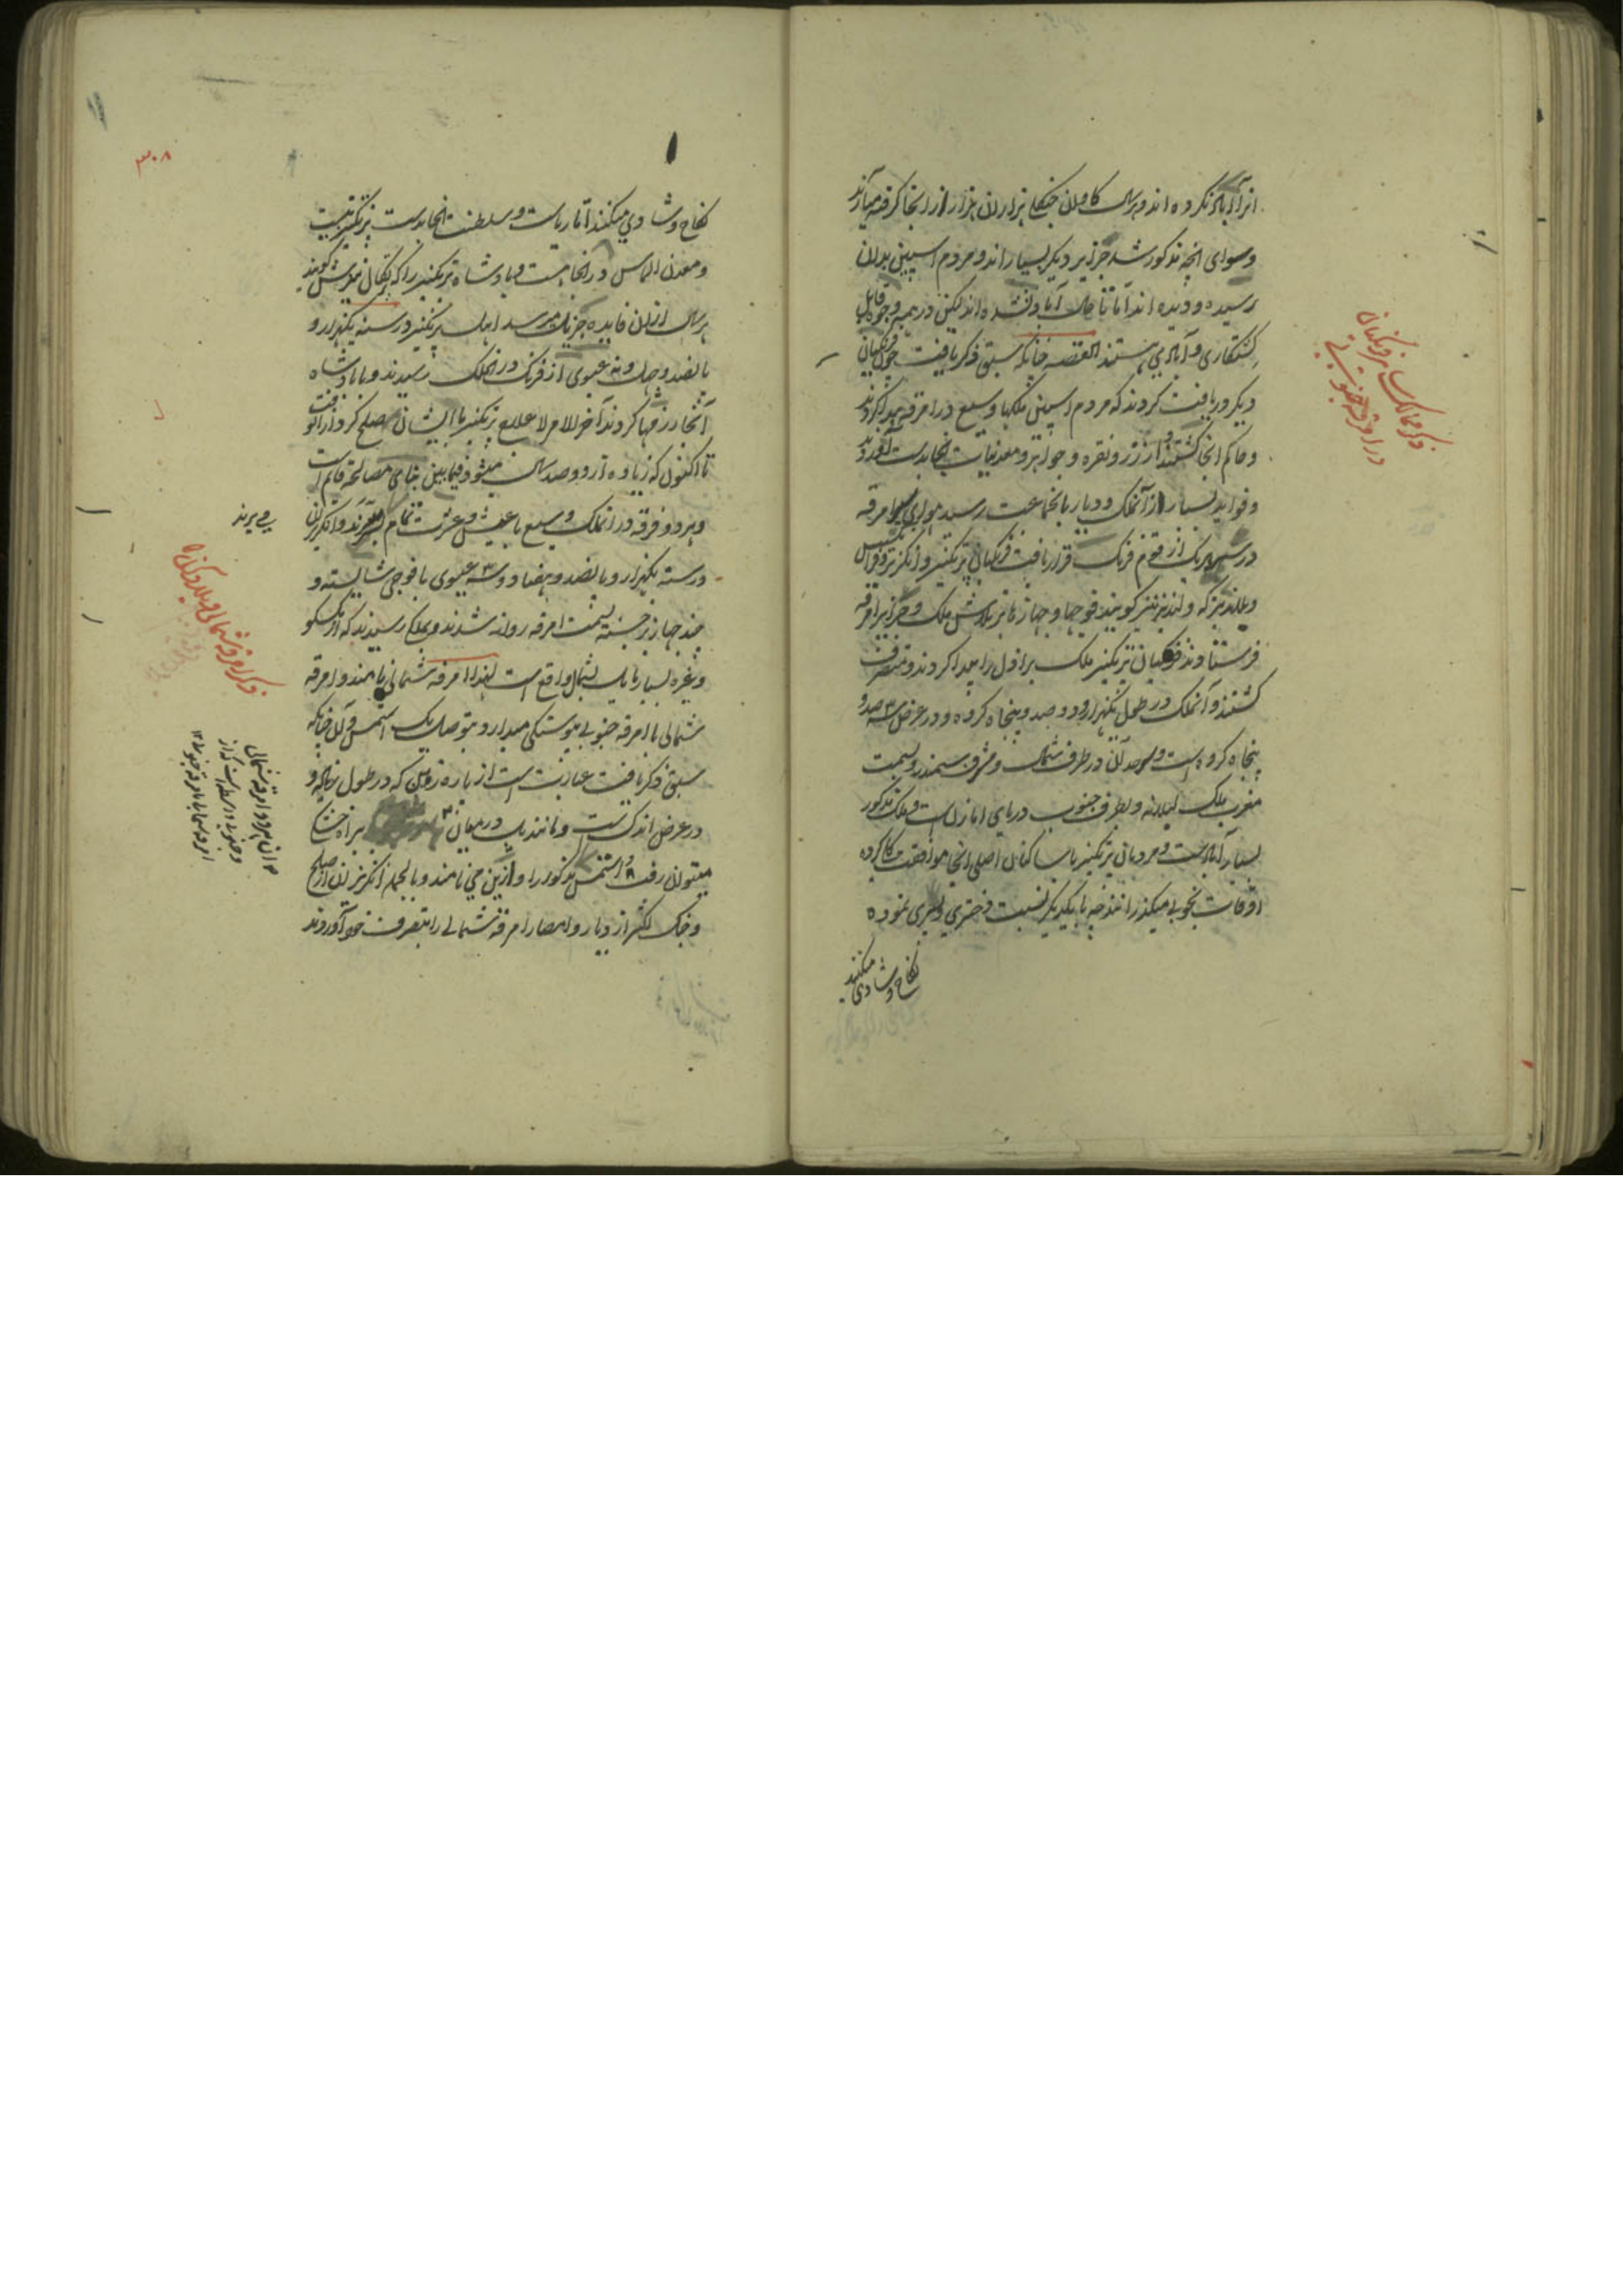 وسوای انچه مذکور شد جزایر دیگر بسیار اند و مردم اسپین بدان
رسیده و دیده اند اما تا حال آباد نشده اند لیکن در همه وجوه قابل
کشتکاری و آبادی هستند القصه چنانکه سبق ذکر یافت چون فرنگیان
دیگر دریافت کردند که مردم اسپین ملکها وسیع در امرقه پیدا کردند
وحاکم انجا کشتند و از زر و نقره و جواهر و معدنیات انجا بدست آوردند
وفواید بسیار از آنملک و دیار بانجماعت رسید هوای امرقه
در سر هر یک از قوم فرنگ قرار یافت فرنگیان پرتکیز و انکریز و فرانسیس
و ولندیز نیز گویند فوجها و جهازها بر تلاش ملک و جزایر امرقه
فرستادند فرنگیان پرتکیز ملک برازل را پیدا کردند و متصرف
کشتند و آنملک در طول یکهزار و دو صد و پنجاه کروه و در عرض سه صد و
پنجاه کروه است و سرحد آن در طرف شمال و مشرق سمندر و بسمت
مغرب ملک و بطرف جنوب دریای امازان است و ملک مذکور
بسیار آباد است و مردمان پرتکیز با ساکنان اصلی انجا موافقت کرده
اوقات بخوبی میگذرانند چه با یکدیگر نسبت دختری و پسری نموده
نکاح و شادی میکنند
ذکر ممالک فرنگیان
در امرقه جنوبی
۳۰۸
نکاح و شادی میکنند اما ریاست و سلطنت انجا بدست پرتکیز است
و معدن الماس در انجا است و پادشاه پرتکیز را که پرتکال نیز گویند
هر سال از ان فایده جزیل میرسد اهل پرتکیز در سنه یکهزار و
پانصد و چهل و نه عیسوی از فرنگ در انملک رسیدند و با پادشاه
آنجا رزمها کردند آخر الامر پرتکیز با ایشان صلح کرد
تا اکنون که زیاده از دو صد سال میشود فیمابین بنای مصالحه قایم است
و هر دو فرقه در انملک وسیع با عیش و عزت تمام بسر برند و انکریزان
در سنه یکهزار و پانصد و هفتاد و سه عیسوی با فوجی شایسته و
چند جهاز برجسته بسمت امرقه روانه شدند و بملکی رسیدند که از مکسکو
وغیره بسیار مایل بشمال واقع است لهذا امرقه شمالی نامند و امرقه
شمالی با امرقه جنوبی پیوستگی میدارد بتوصل یک استمس و آن چنانکه
سبق ذکر یافت عبارتست از پاره زمین که در طول زیاده و
در عرض اندک است و مانند پل درمیان براه خشکی
میتوان رفت و استمس مذکور را دارین می نامند و بالجمله انکریزان از صلح
و جنگ اکثر از دیار و امصار امرقه شمالی را بتصرف خود آوردند
ذکر امرقه شمالی